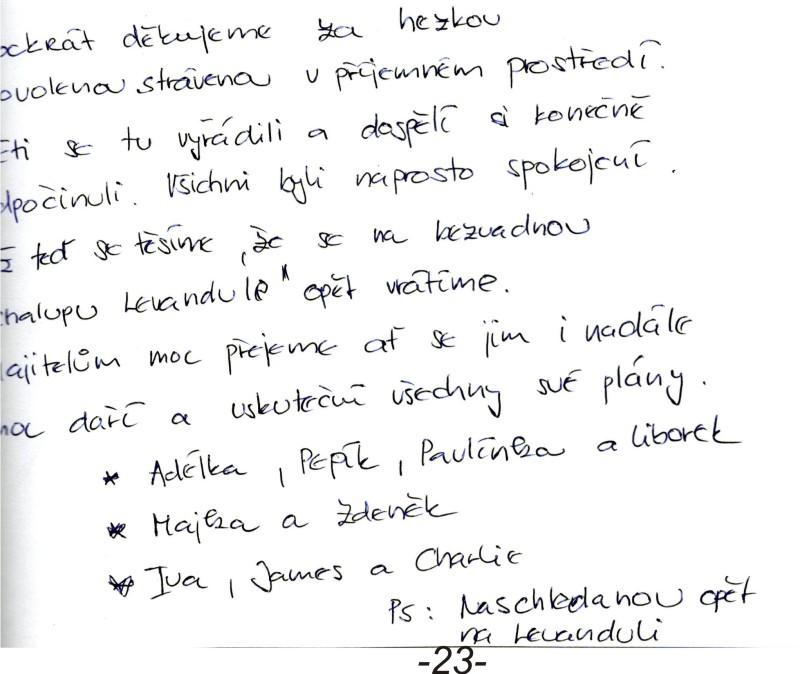 ockrát děkujeme za hezkou
ovolenou strávenou v příjemném prostředí.
ěti se tu vyřádili a dospělí si konečně
dpočinuli. Všichni byli naprosto spokojení.
ž teď se těšíme, že se na bezvadnou
halupu Levandule" opět vrátíme.
ajitelům moc přejeme ať se jim i nadále
moc daří a uskuteční všechny své plány.
* Adélka, Pepík, Paulínka a Liborek
* Majka a Zdeněk
* Iva, James a Charlie
Ps: Naschledanou opět
na Levanduli
-23-